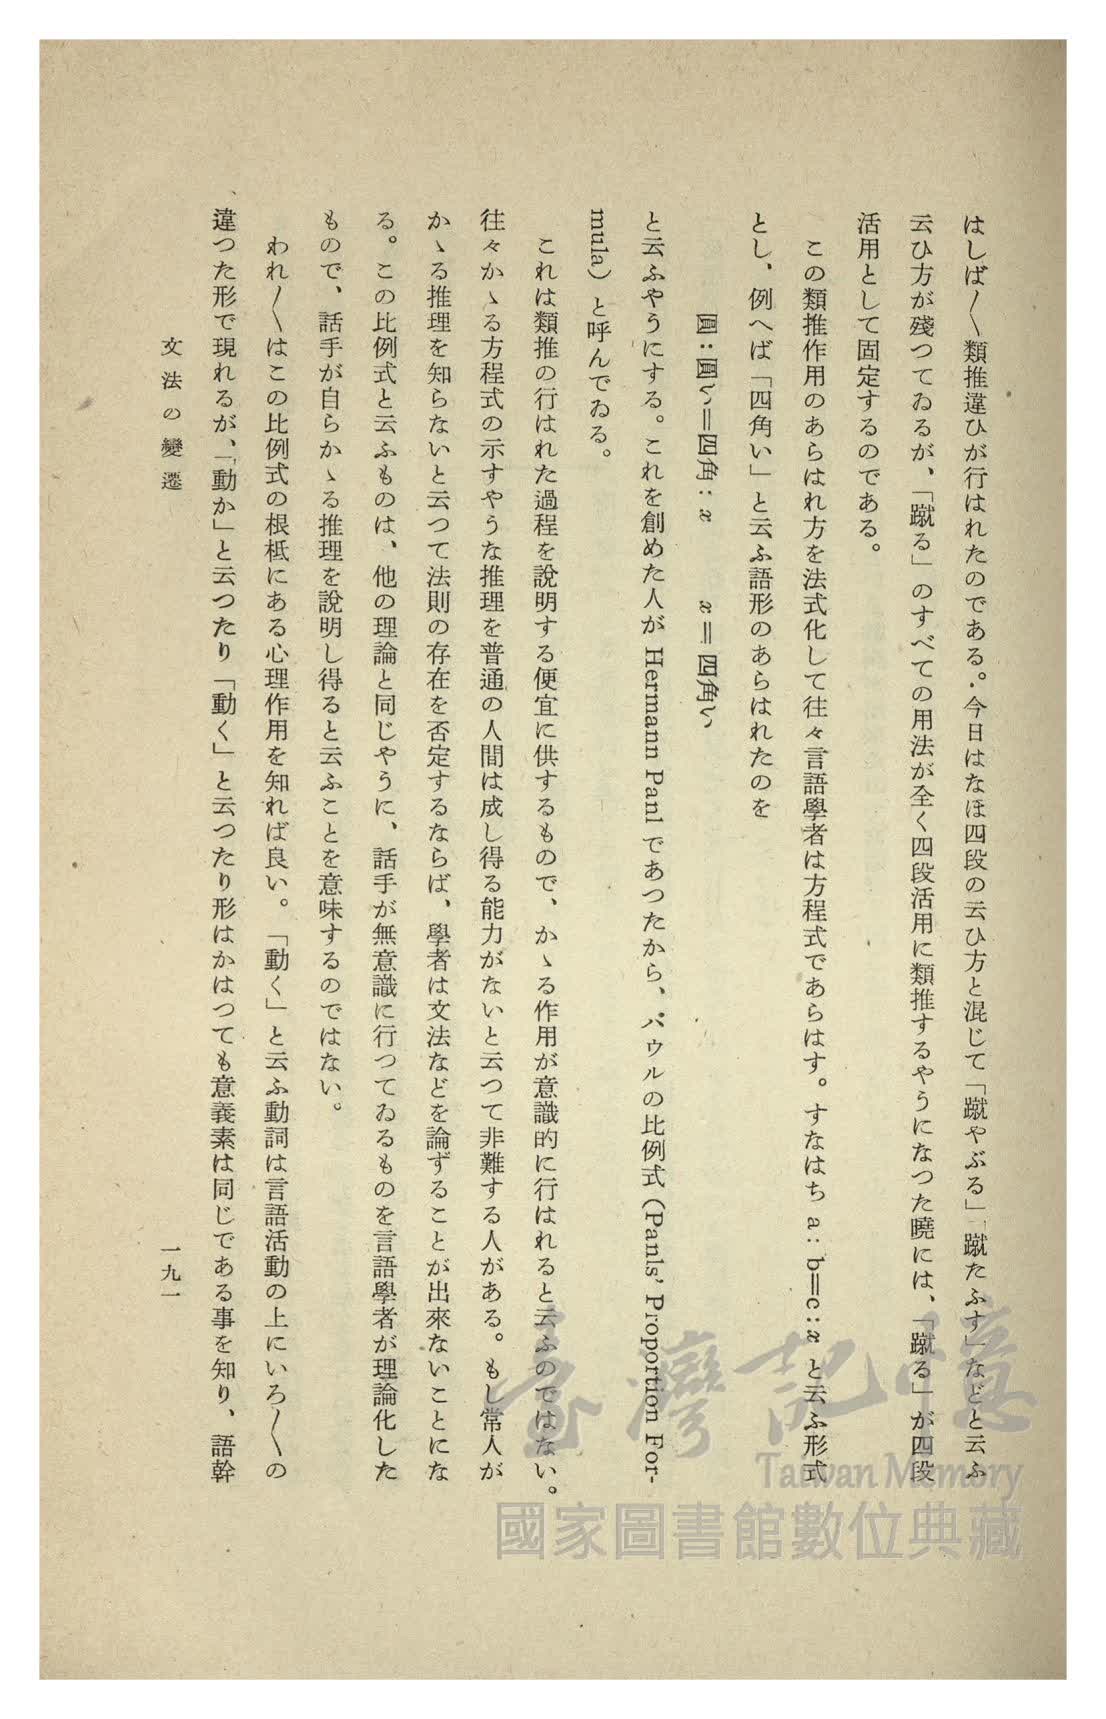 はしば〳〵類推違ひが行はれたのである。今日はなほ四段の云ひ方と混じて「蹴やぶる」「蹴たふす」などと云ふ
云ひ方が殘つてゐるが、「蹴る」のすべての用法が全く四段活用に類推するやうになつた曉には、「蹴る」が四段
活用として固定するのである。
この類推作用のあらはれ方を法式化して往々言語學者は方程式であらはす。すなはち a: b=c:x と云ふ形式
とし、例へば「四角い」と云ふ語形のあらはれたのを
圓:圓い=四角:x　x=四角い
と云ふやうにする。これを創めた人が Hermann Panl であつたから、パウルの比例式(Panls' Proportion For-
mula) と呼んでゐる。
これは類推の行はれた過程を說明する便宜に供するもので、かゝる作用が意識的に行はれると云ふのではない。
往々かゝる方程式の示すやうな推理を普通の人間は成し得る能力がないと云つて非難する人がある。もし常人が
かゝる推理を知らないと云つて法則の存在を否定するならば、學者は文法などを論ずることが出來ないことにな
る。この比例式と云ふものは、他の理論と同じやうに、話手が無意識に行つてゐるものを言語學者が理論化した
もので、話手が自らかゝる推理を說明し得ると云ふことを意味するのではない。
われ〳〵はこの比例式の根柢にある心理作用を知れば良い。「動く」と云ふ動詞は言語活動の上にいろ〳〵の
違つた形で現れるが、「動か」と云つたり「動く」と云つたり形はかはつても意義素は同じである事を知り、語幹
文法の變遷
一九一
臺灣記憶
Taiwan Memory
國家圖書館數位典藏